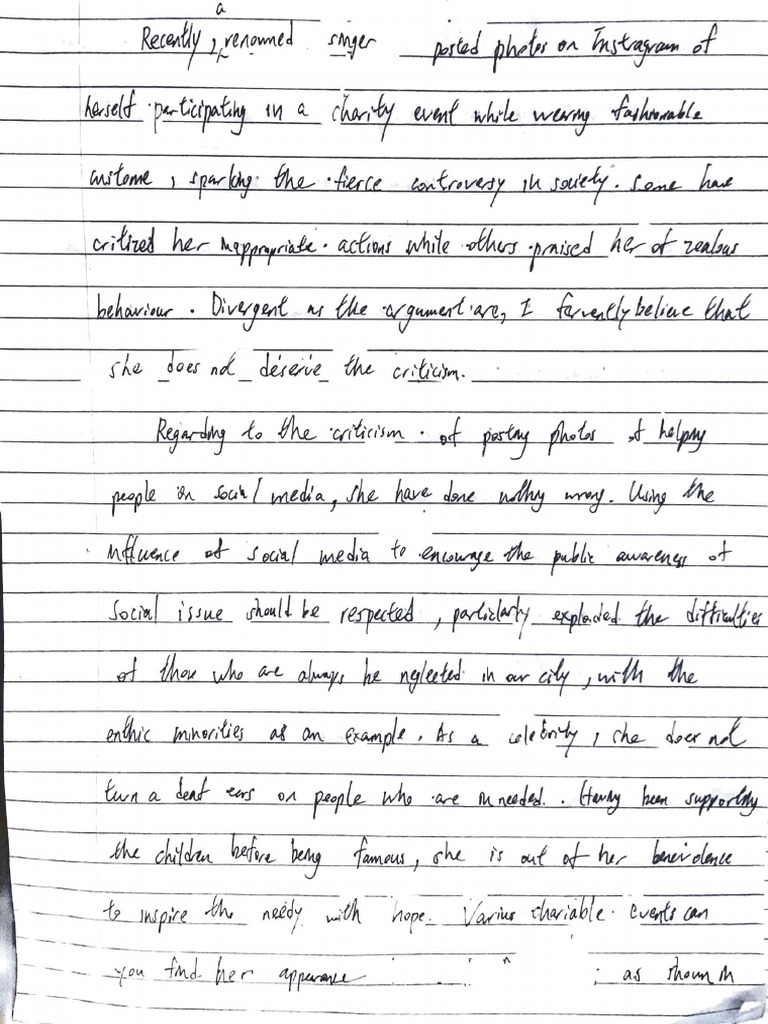 a
Recently, renowned singer posted photos on Instragram of
herself participating in a charity event while wearing fashionable
custome, sparking the fierce controversy in society. Some have
critized her inappropriate actions while others praised her of zealous
behaviour. Divergent as the argument are, I fervently believe that
she does not deserve the criticism.
Regarding to the criticism of posting photos of helping
people on social media, she have done nothing wrong. Using the
influence of social media to encourage the public awareness of
social issue should be respected, particlarly exploded the difficulties
of those who are always be neglected in our city, with the
enthic minorities as an example. As a celebrity, she does not
turn a deaf ears on people who are in needed. Having been supporting
the children before being famous, she is out of her benevolence
to inspire the needy with hope. Varius chariable events can
you find her apperance as shown in